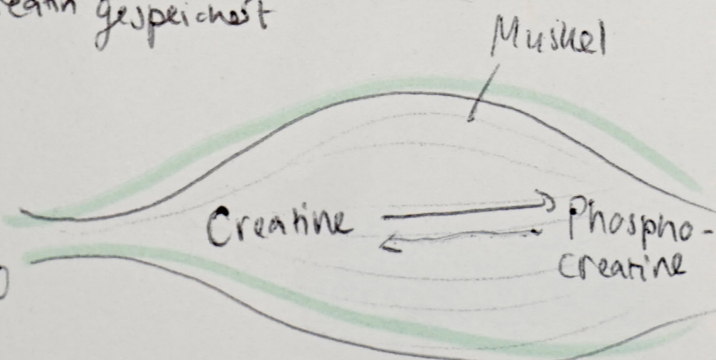 gespeichert
Muskel
Creatine
Phospho-
creatine